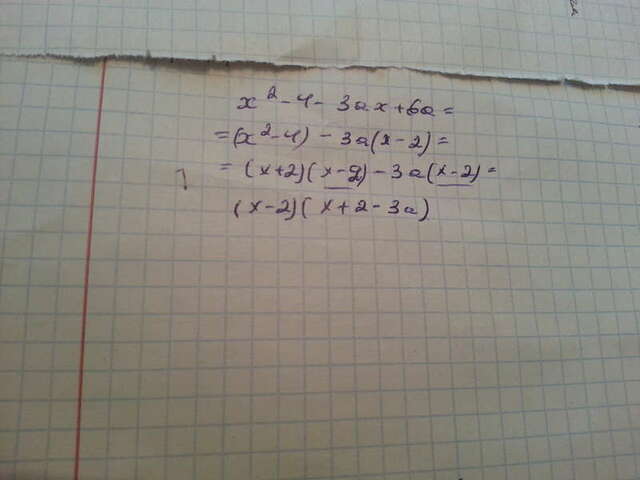 x²-4-3ax+6a=
=(x²-4)-3a(x-2)=
=(x+2)(x-2)-3a(x-2)=
(x-2)(x+2-3a)